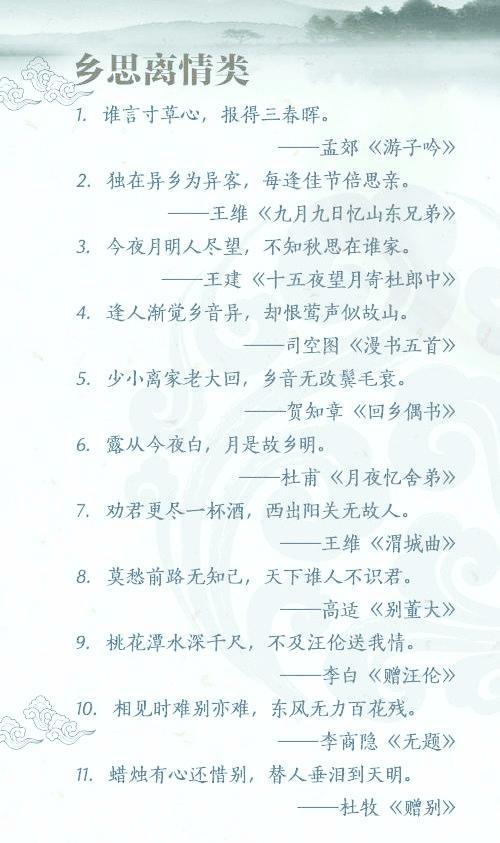 乡思离情类
1. 谁言寸草心，报得三春晖。
——孟郊《游子吟》
2. 独在异乡为异客，每逢佳节倍思亲。
——王维《九月九日忆山东兄弟》
3. 今夜月明人尽望，不知秋思在谁家。
——王建《十五夜望月寄杜郎中》
4. 逢人渐觉乡音异，却恨莺声似故山。
——司空图《漫书五首》
5. 少小离家老大回，乡音无改鬓毛衰。
——贺知章《回乡偶书》
6. 露从今夜白，月是故乡明。
——杜甫《月夜忆舍弟》
7. 劝君更尽一杯酒，西出阳关无故人。
——王维《渭城曲》
8. 莫愁前路无知己，天下谁人不识君。
——高适《别董大》
9. 桃花潭水深千尺，不及汪伦送我情。
——李白《赠汪伦》
10. 相见时难别亦难，东风无力百花残。
——李商隐《无题》
11. 蜡烛有心还惜别，替人垂泪到天明。
——杜牧《赠别》